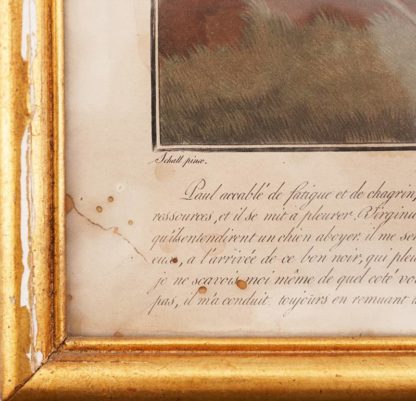 Schall pinx.
Paul accablé de fatigue et de chagrin,
ressources, et il se mit à pleurer. Virginie
qu'ils entendirent un chien aboyer. il me sem
eux, a l'arrivée de ce bon noir, qui pleu
je ne scavois moi même de quel coté vo
pas, il m'a conduit toujours en remuant